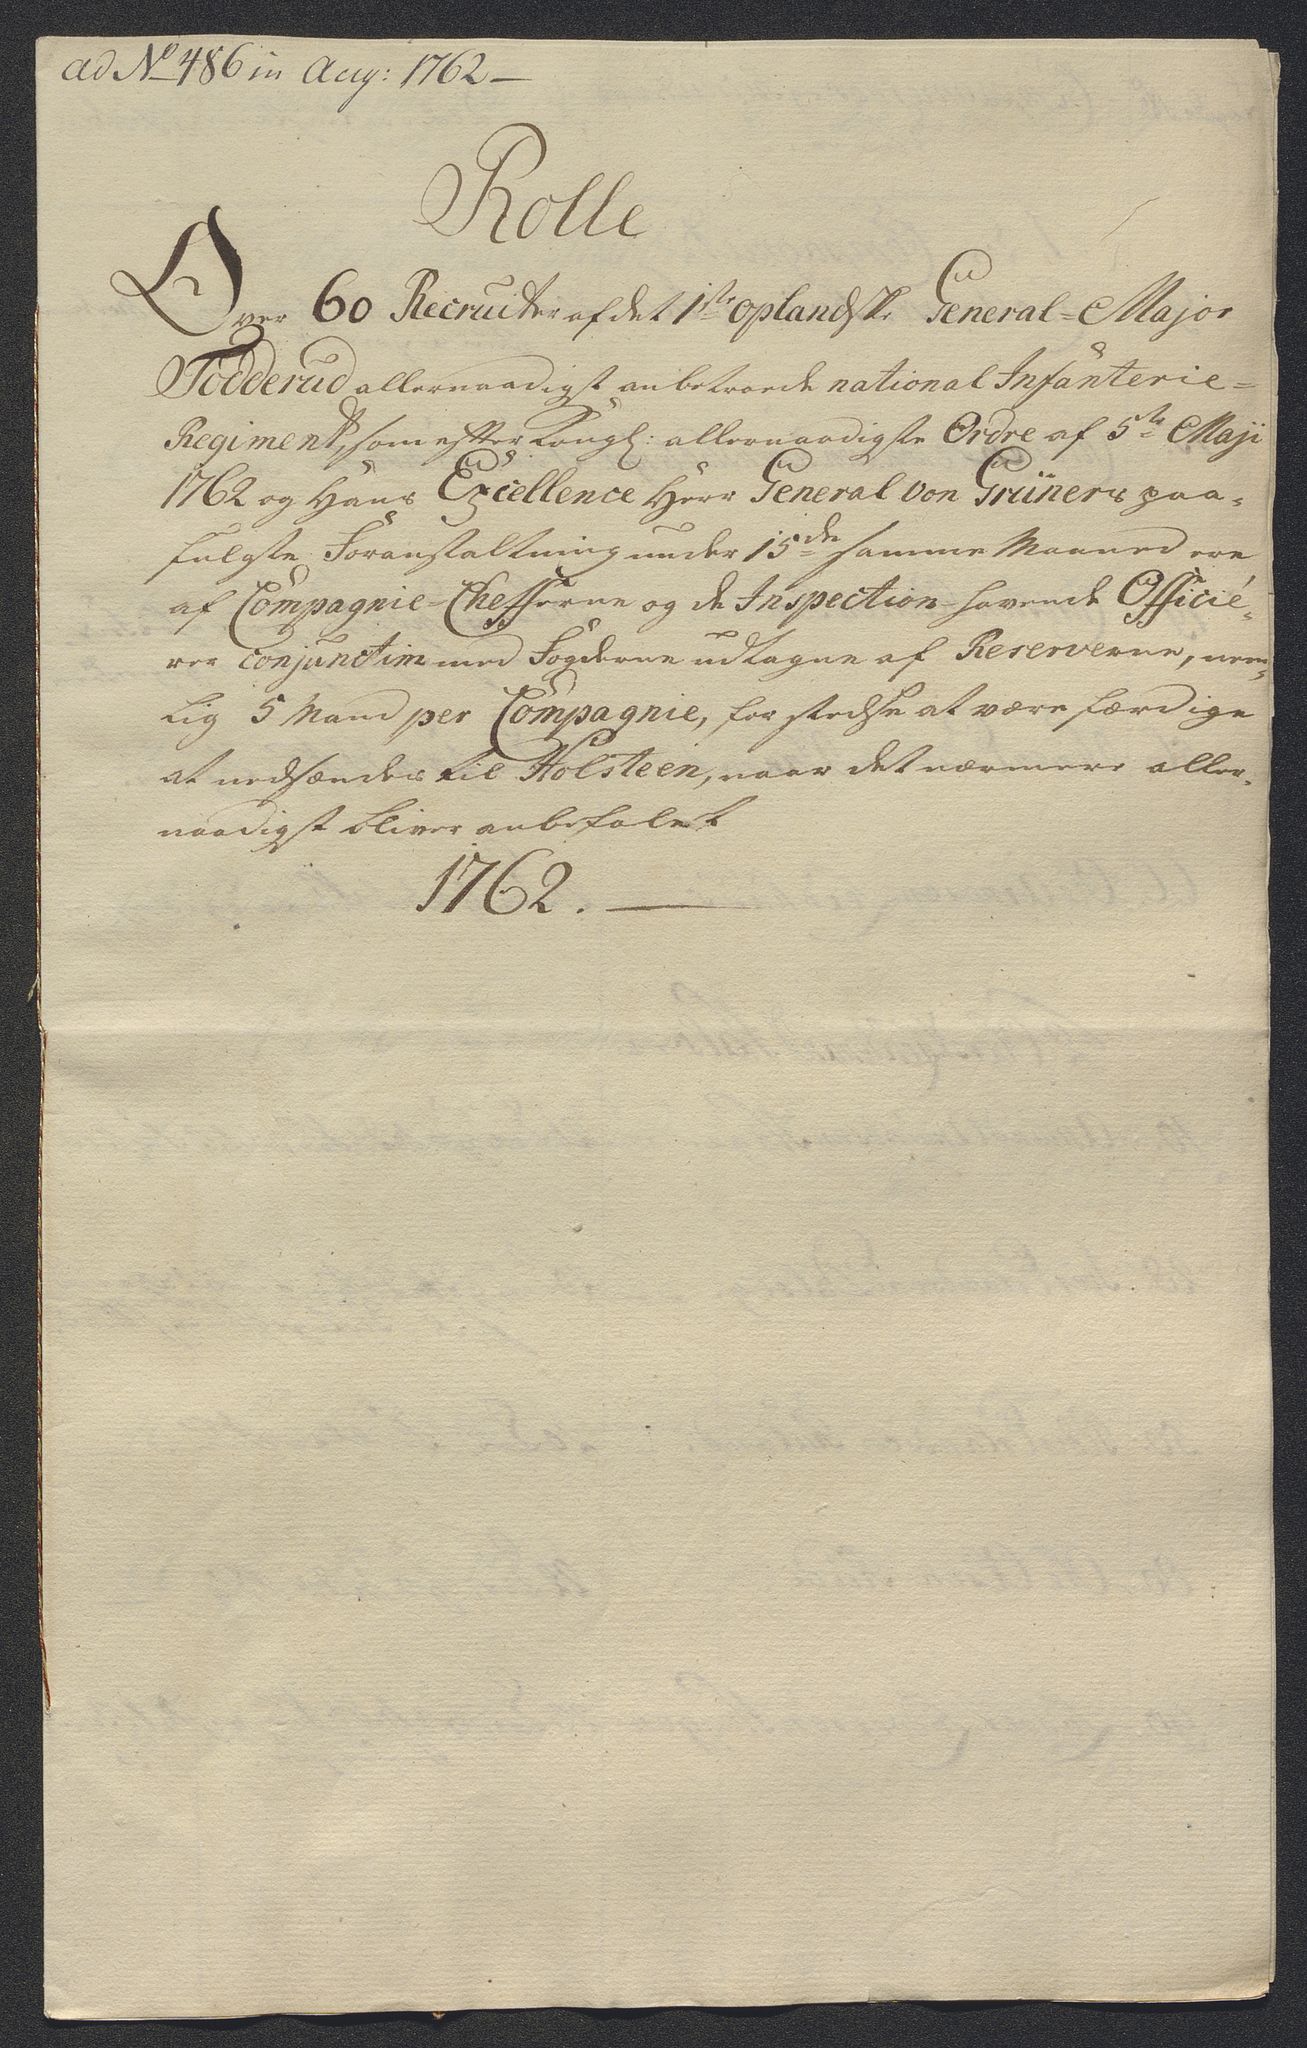 ad No 486 in Aug: 1762 —
Rolle
Over 60 Recruiter af det 1ste Oplandske General-Major
Todderud allernaadigst anbetroede national Infanterie-
Regiment, som efter Kongl: allernaadigste Ordre af 5te Maji
1762 og Hans Excellence Herr General von Grüners paa-
fulgte Foranstaltning under 15de samme Maaned ere
af Compagnie-Chefferne og de Inspection havende Officié-
rer conjunctim med Fogderne udtagne af Reserverne, nem-
lig 5 Mand per Compagnie, for stedse at være færdige
at nedsændes til Holsteen, naar det nærmere aller-
naadigst bliver anbefalet
1762. —